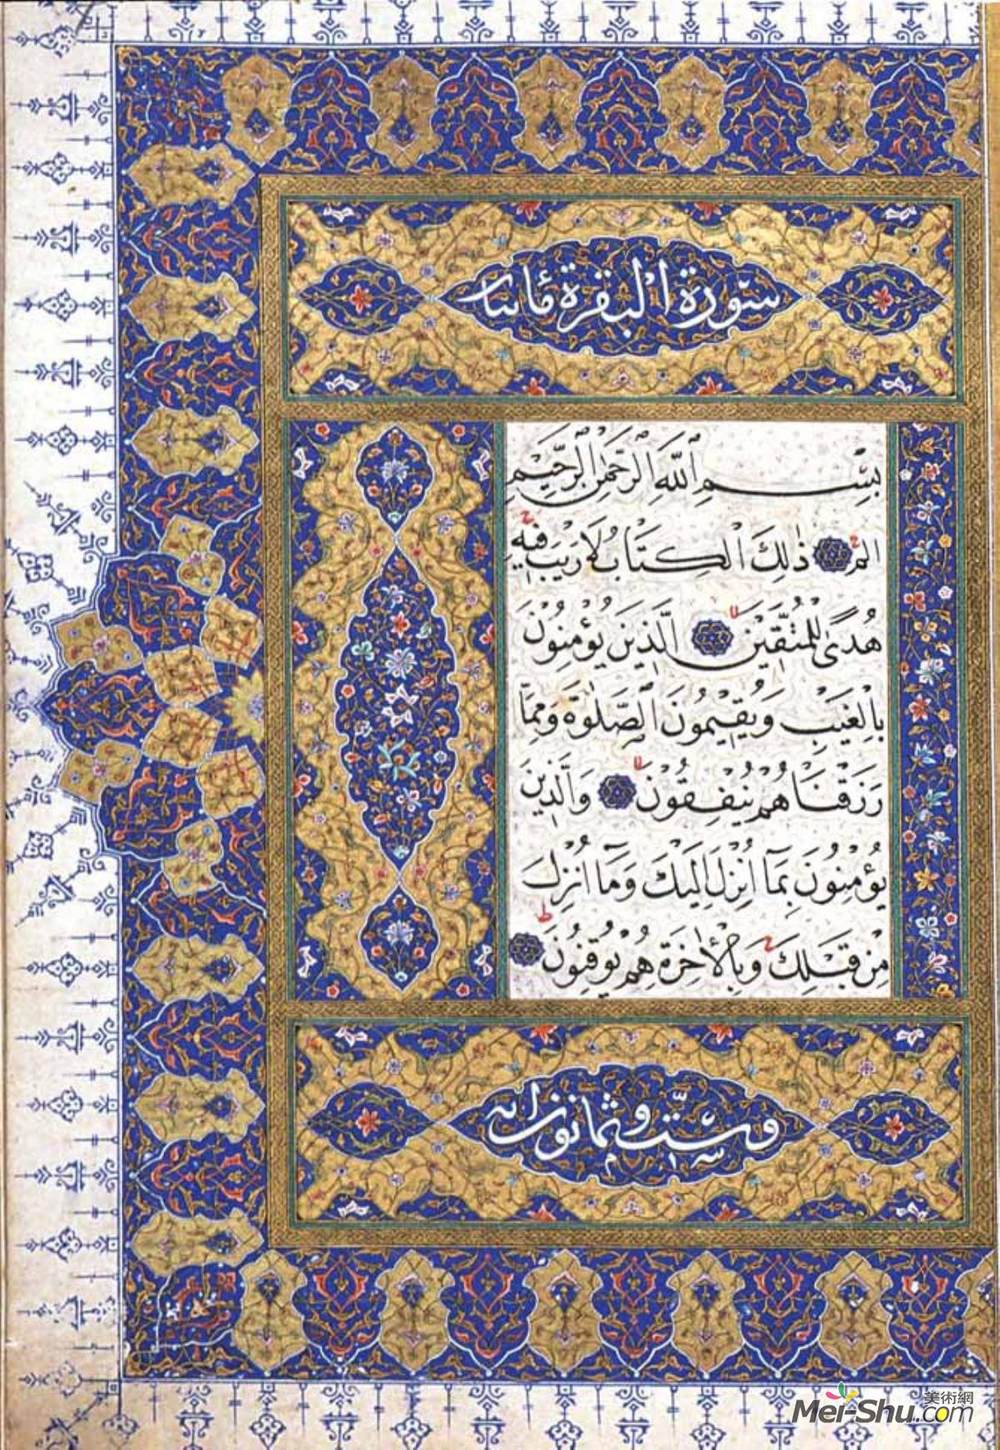 سورة البقرة مائتان
بِسْمِ ٱللَّهِ ٱلرَّحْمٰنِ ٱلرَّحِيمِ
الم ذٰلِكَ ٱلْكِتَابُ لَا رَيْبَ فِيهِ
هُدًى لِلْمُتَّقِينَ ٱلَّذِينَ يُؤْمِنُونَ
بِالْغَيْبِ وَيُقِيمُونَ ٱلصَّلٰوةَ وَمِمَّا
رَزَقْنَاهُمْ يُنْفِقُونَ وَالَّذِينَ
يُؤْمِنُونَ بِمَٓا أُنْزِلَ إِلَيْكَ وَمَٓا أُنْزِلَ
مِنْ قَبْلِكَ وَبِالْأٰخِرَةِ هُمْ يُوقِنُونَ
وستّ وثمانون اية
美術網
Mei-Shu.com